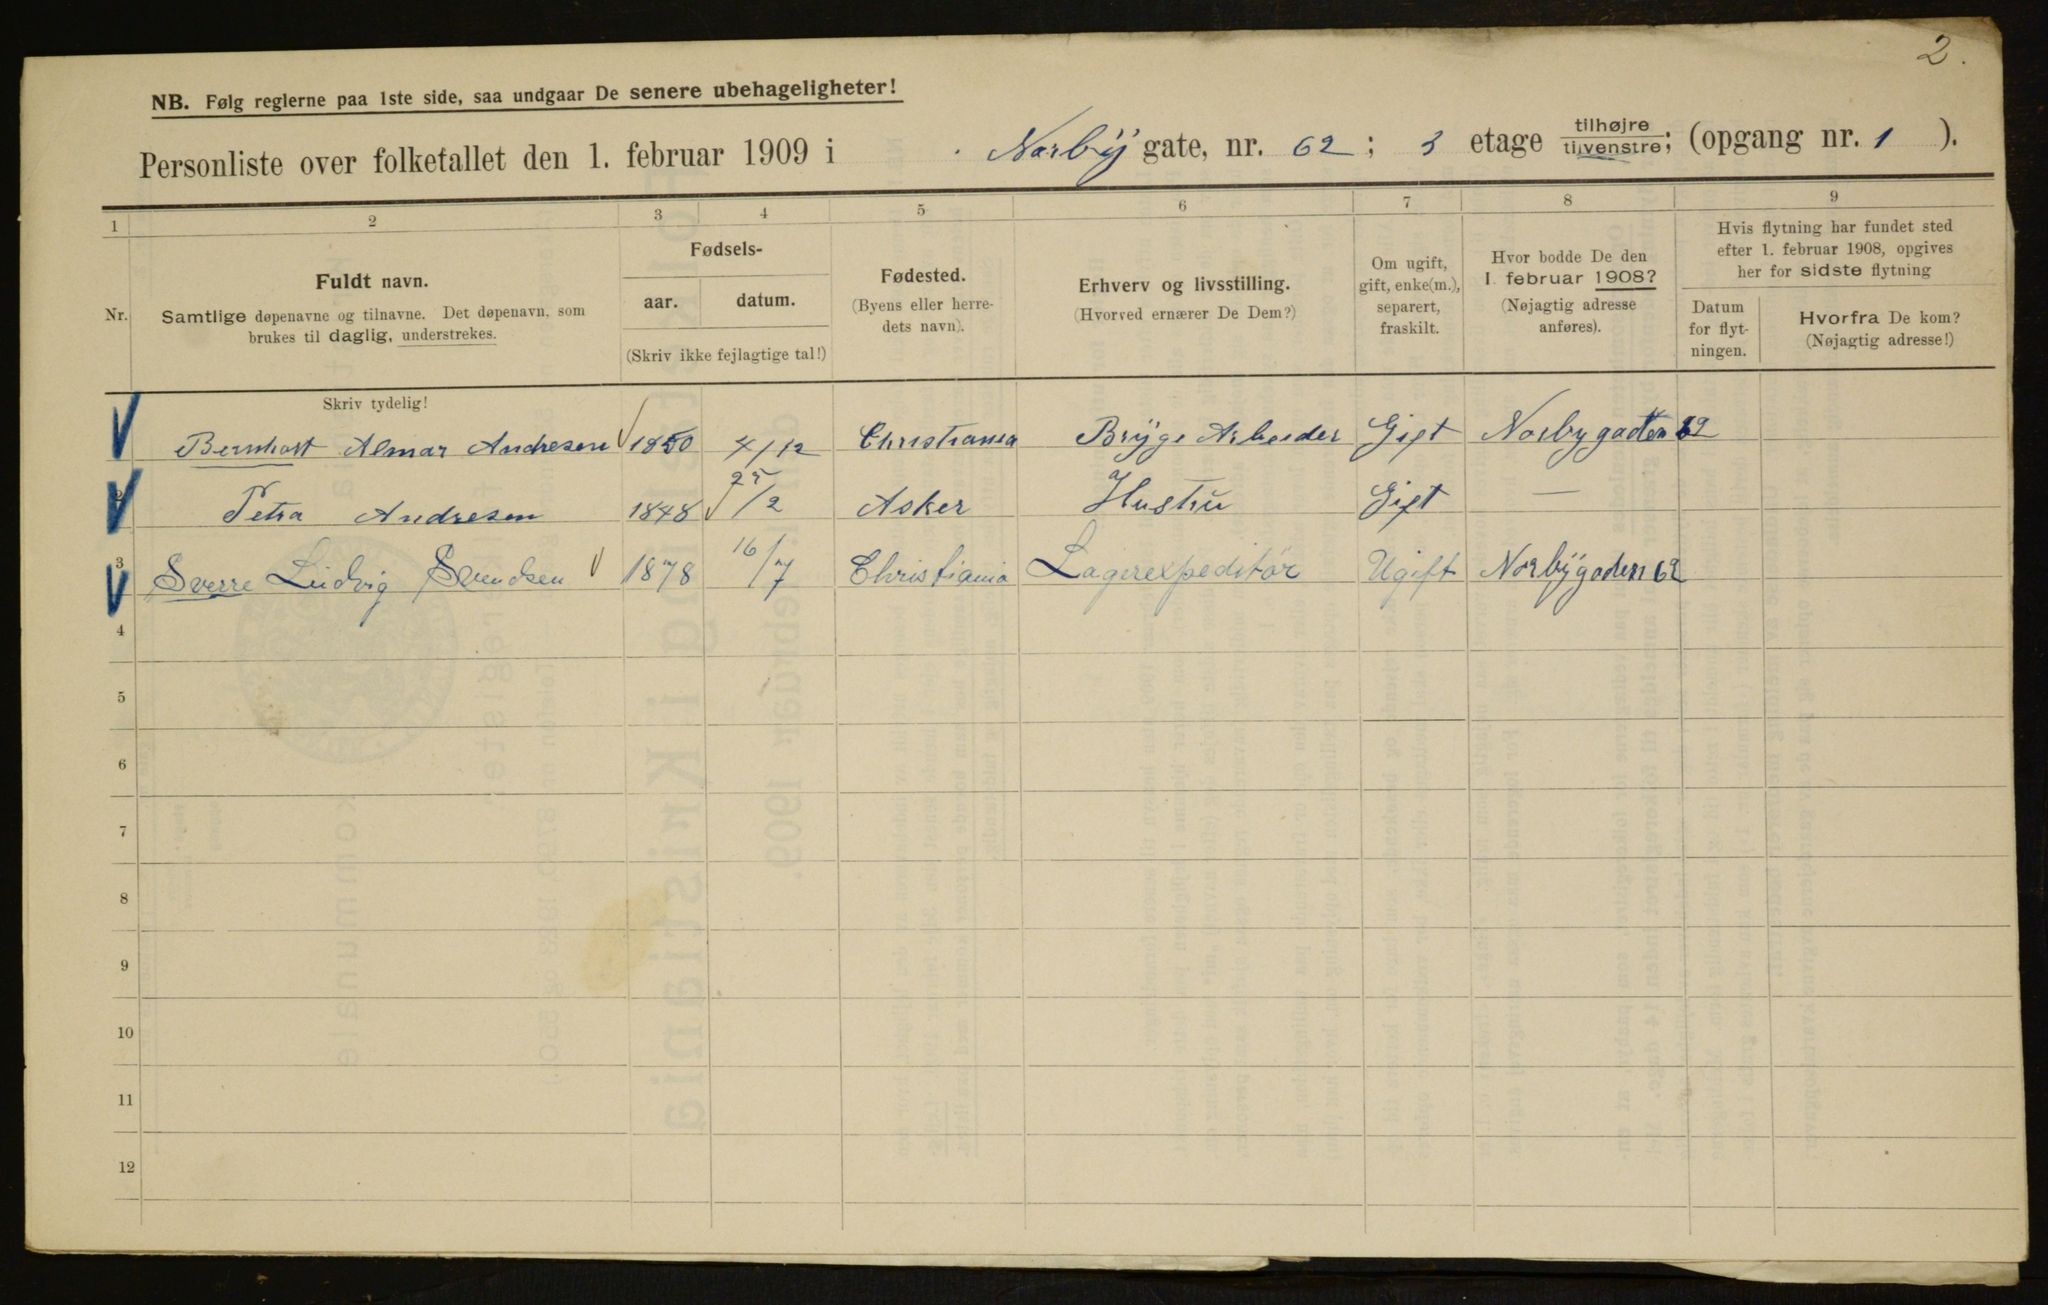 2.
NB. Følg reglerne paa 1ste side, saa undgaar De senere ubehageligheter!
Personliste over folketallet den 1. februar 1909 i Norbÿ gate, nr. 62; 3 etage tilhøjre tilvenstre; (opgang nr. 1 ).
1 2 3 4 5 6 7 8 9
Nr.
Fuldt navn.
Samtlige døpenavne og tilnavne. Det døpenavn, som
brukes til daglig, understrekes.
Skriv tydelig!
Fødsels-
aar. datum.
(Skriv ikke fejlagtige tal!)
Fødested.
(Byens eller herre-
dets navn).
Erhverv og livsstilling.
(Hvorved ernærer De Dem?)
Om ugift,
gift, enke(m.),
separert,
fraskilt.
Hvor bodde De den
1. februar 1908?
(Nøjagtig adresse
anføres).
Hvis flytning har fundet sted
efter 1. februar 1908, opgives
her for sidste flytning
Datum
for flyt-
ningen.
Hvorfra De kom?
(Nøjagtig adresse!)
Bernhart Almar Andresen 1850 4/12 Christiania Brÿge Arbeider Gift Norbygaden 62
2 Petra Andresen 1848 25/2 Asker Hustru Gift —
3 Sverre Ludvig Svendsen 1878 16/7 Christiania Lagerexpeditör Ugift Norbÿgaden 62
4
5
6
7
8
9
10
11
12